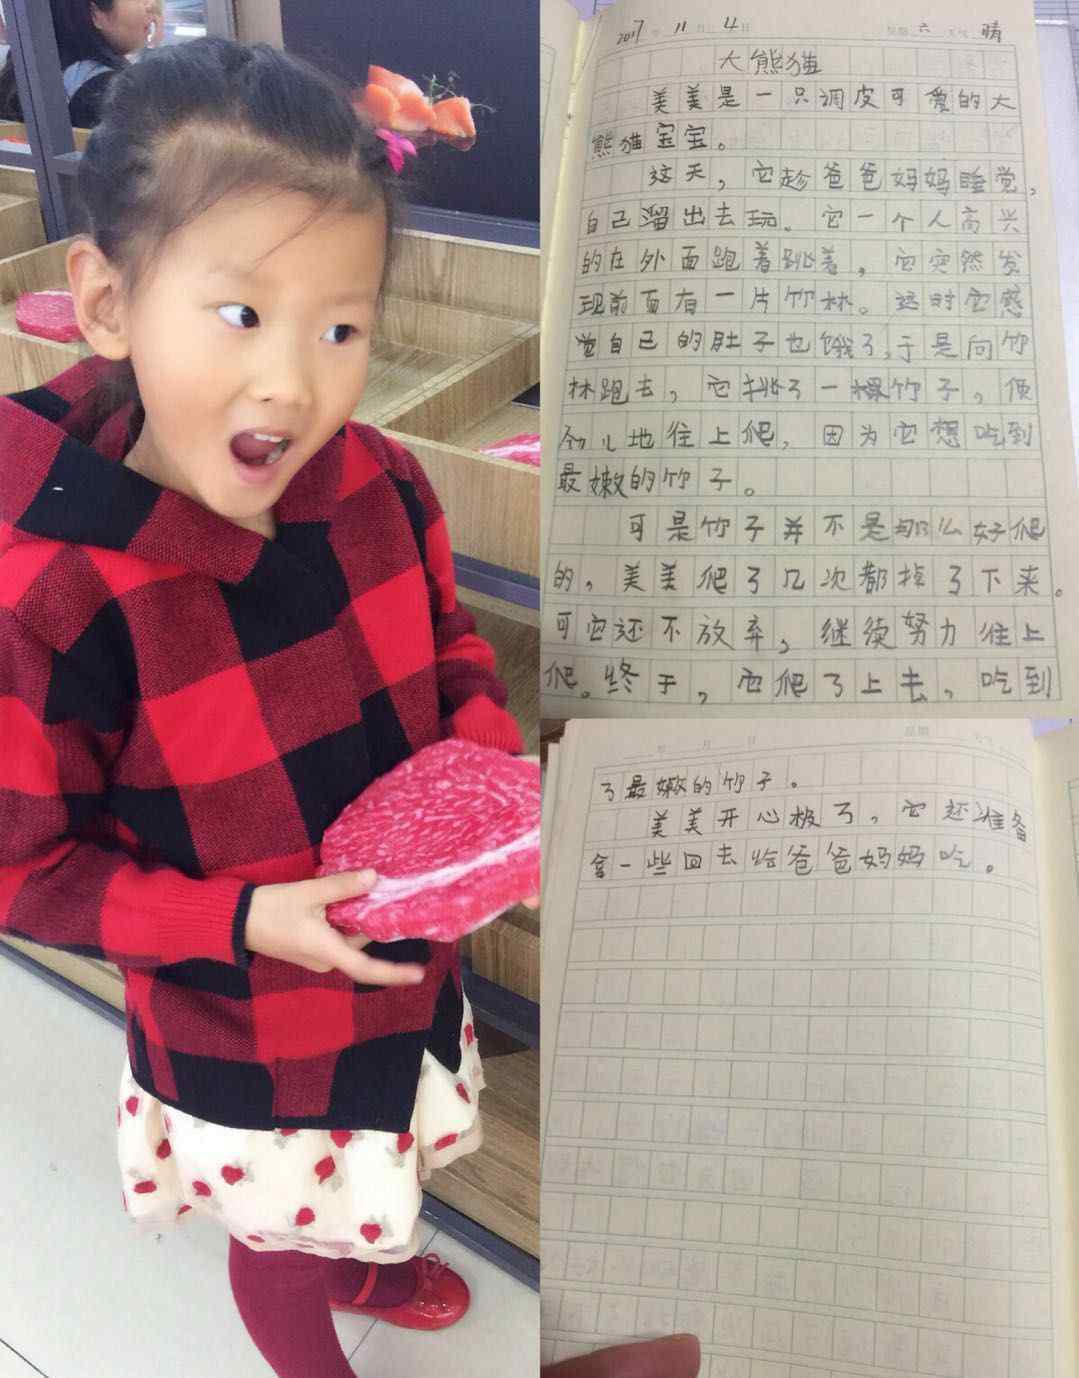 2017年11月4日 星期六 天气晴
大熊猫
美美是一只调皮可爱的大
熊猫宝宝。
这天，它趁爸爸妈妈睡觉，
自己溜出去玩。它一个人高兴
的在外面跑着跳着，它突然发
现前面有一片竹林。这时它感
觉自己的肚子也饿了，于是向竹
林跑去，它挑了一棵竹子，使
劲儿地往上爬，因为它想吃到
最嫩的竹子。
可是竹子并不是那么好爬
的，美美爬了几次都掉了下来。
可它还不放弃，继续努力往上
爬。终于，它爬了上去，吃到
年 月 日 星期
了最嫩的竹子。
美美开心极了，它还准备
拿一些回去给爸爸妈妈吃。